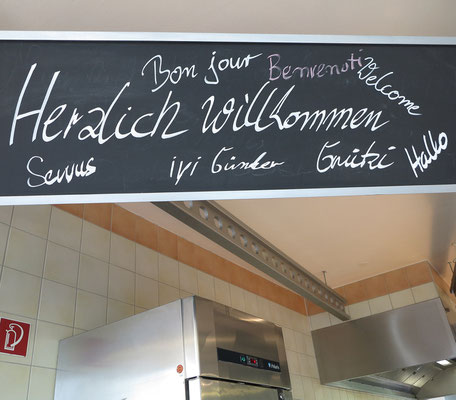 Bon jour
Benvenoti
Welcome
Herzlich Willkommen
Servus
iyi Günler
Grützi
Hallo